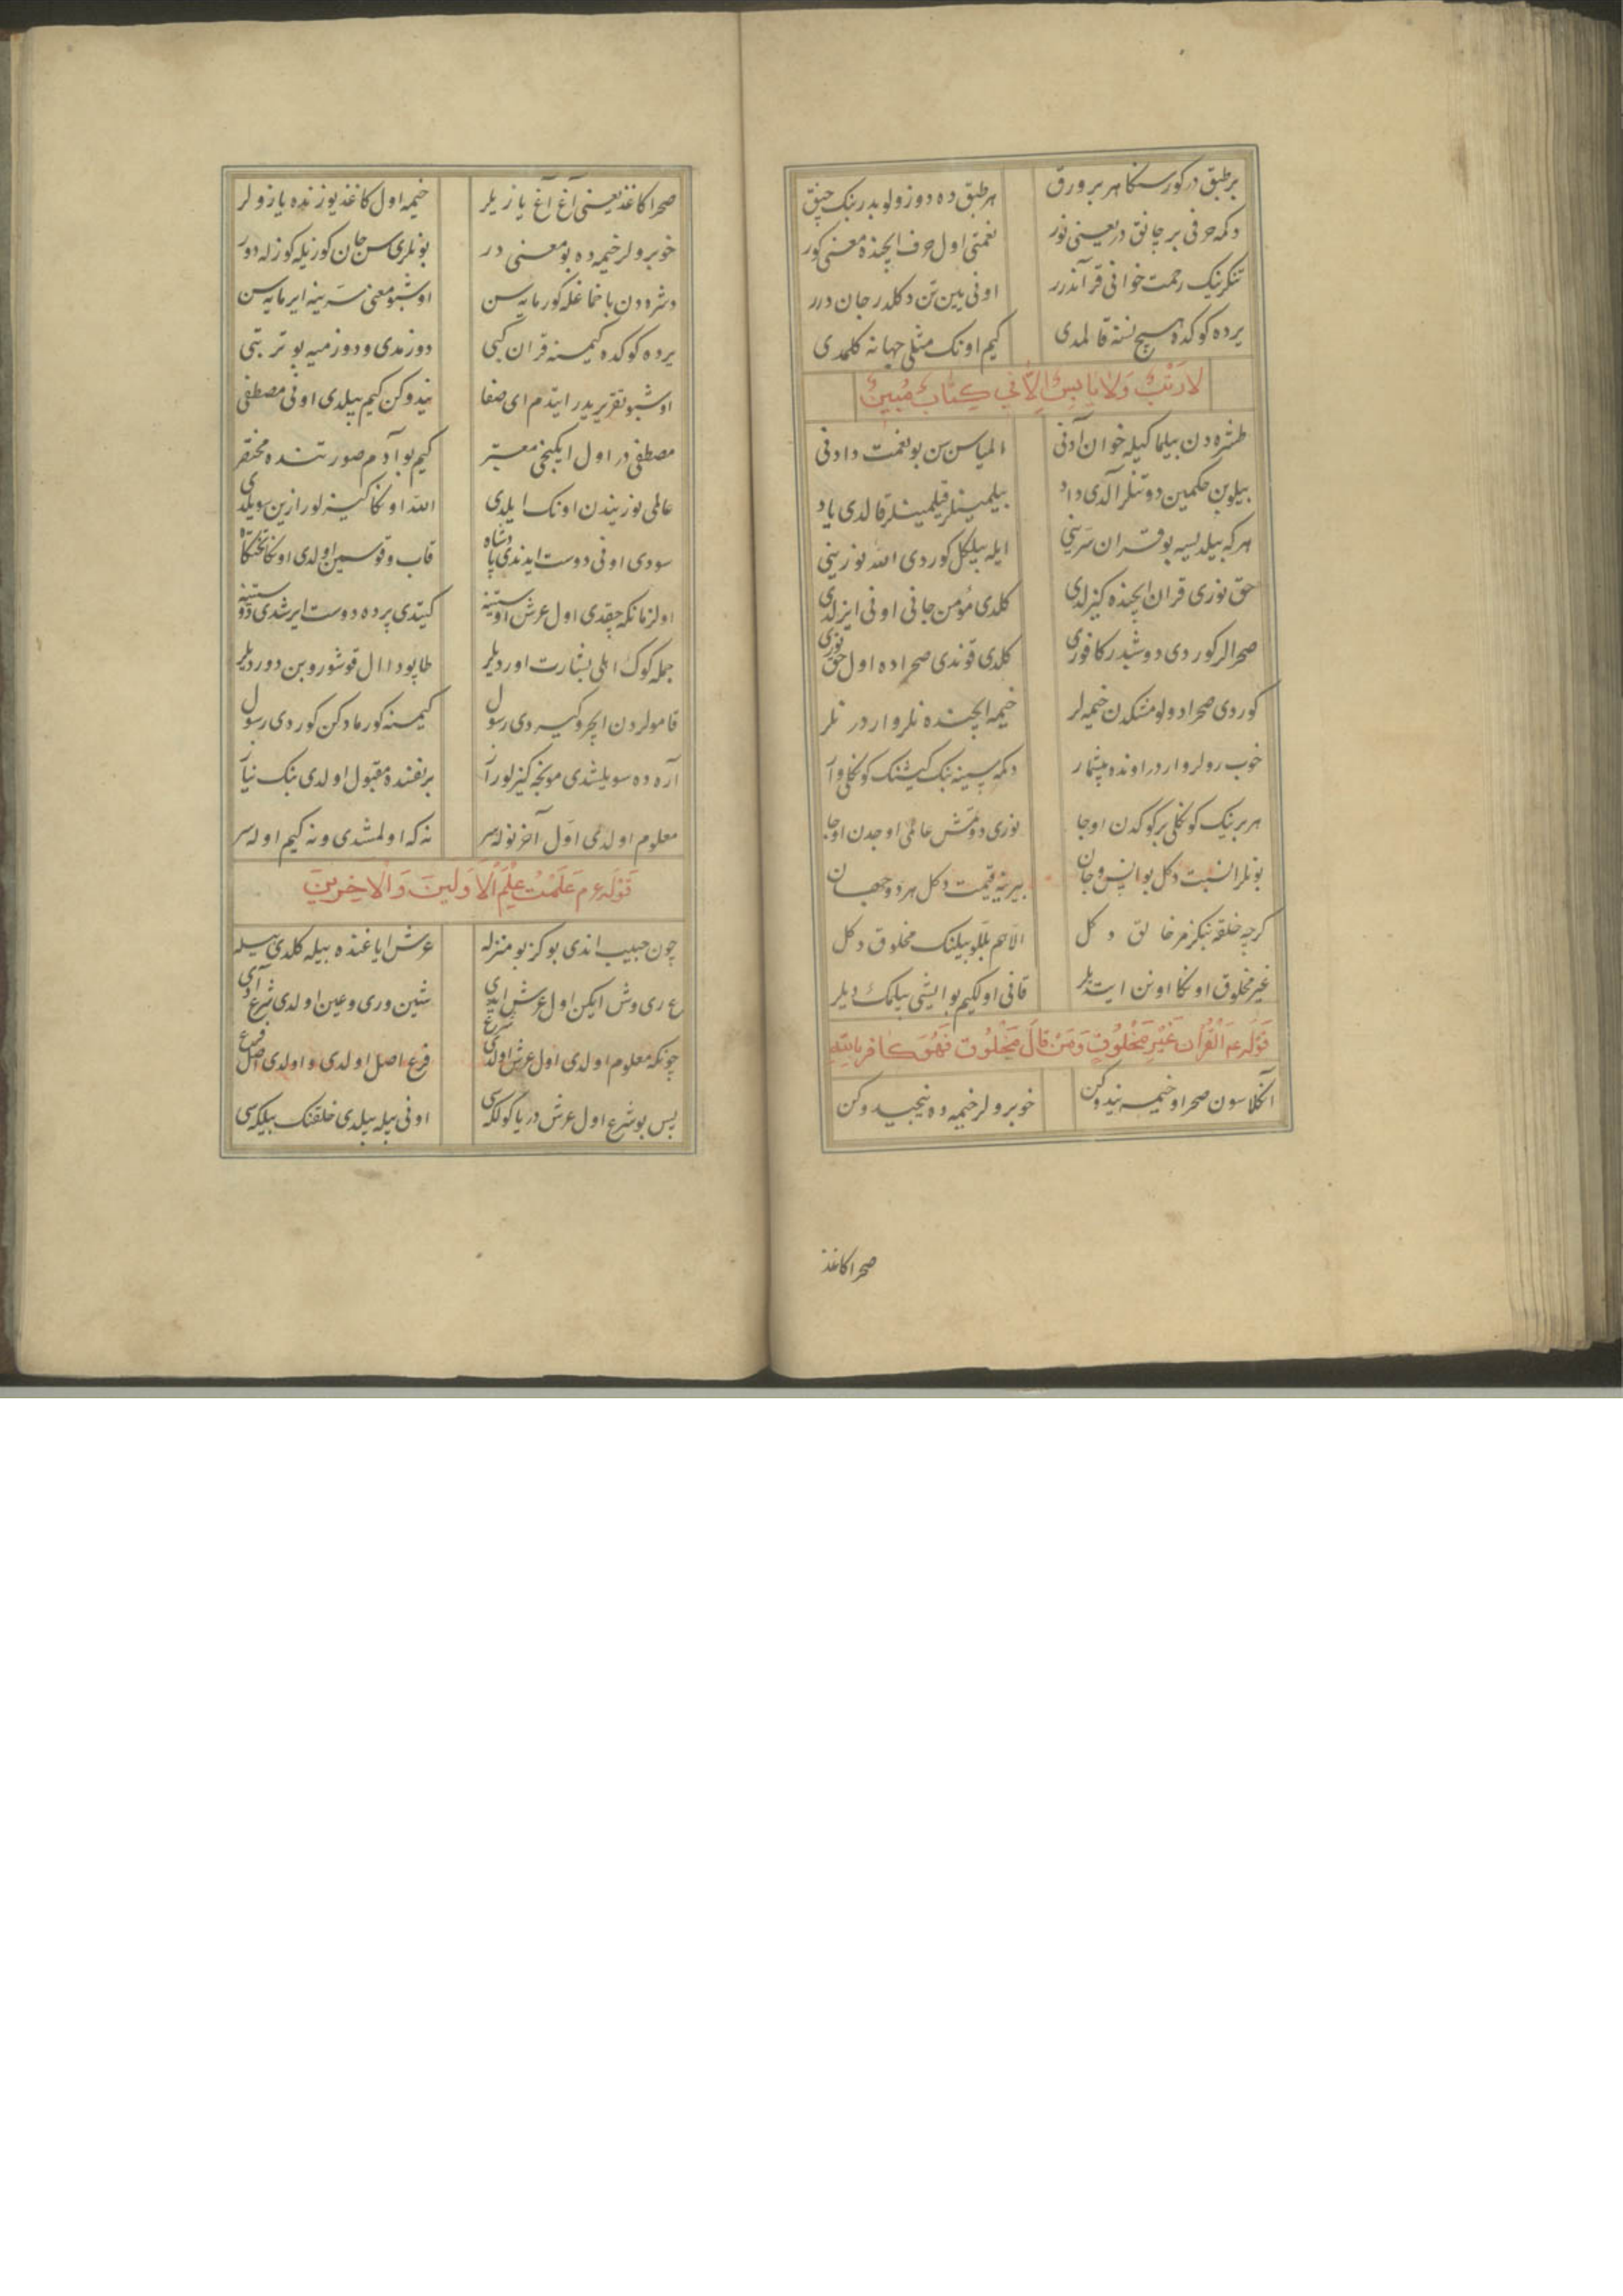 بر طبق در کور سکا هر بر ورق هر طبق ده دوزولو بدر بنک چنق
دکمه حرفی بر چانق در یعنی نور نعمتی اول حرف ایچنده معنی کور
تنکرینک رحمت خوانی قرآندرر اونی یین تن دکلدر جان درر
یرده کوکده هیچ نسنه قالمدی کیم اونک مثلی جهانه کلمدی
لا رَطْبٍ وَلا يابِسٍ اِلاّ في كِتابٍ مُبينٍ
طشره دن بیلماکیله خوان آدنی المیاسن سن بو نعمت دادنی
بیلوبن حکمین دوتنلر آلدی داد بیلمینلر قیلمینلر قالدی یاد
هر که بیلدیسه بو قران سرینی ایله بیلکل کوردی الله نوزینی
حق نوری قران ایچنده کیزلدی کلدی مؤمن جانی اونی ایزلدی
صحرالر کوردی دوشیدر کافوری کلدی قوندی صحراده اول حق نوری
کوردی صحرا دولو مشکدن خیمه لر خیمه ایچنده نلر واردر نلر
خوب رولر واردر اونده بیشمار دکمه سینه بنک کیشنک کوکلی وار
هر برینک کوکلی برکوکدن اوجا نوری دوتمش عالمی اوجدن اوجا
بونلرا نسبت دکل بو انس و جان بیرینه قیمت دکل هر دو جهان
کرچه خلقه بنکزر خالق دکل الا هم بللو بیلنک مخلوق دکل
غیر مخلوق اونکا اونن ایتدیلر قانی اولکیم بو ایشی بیلمک دیلر
قَوْلُه عم اَلْقُرْآن غَيْرِ مَخْلُوقٍ وَمَنْ قالَ مَخْلُوقٌ فَهُوَ كافر بالله
آنکلاسون صحرا و خیمه نیدوکن خوبرولر خیمه ده نیجیدوکن
صحرا کاغذ
صحرا کاغذ یعنی آغ آغ یازیلر خیمه اول کاغذ یوزنده یازولر
خوبرولر خیمه ده بو معنی در بونلری سن جان کوزیله کوزله دور
دشره دن باخماغله کورمایه سن اوشبو معنی سرینه ایرمایه سن
یرده کوکده کیمسنه قران کبی دوزمدی و دوزمیه بو ترتبی
اوشبو تقریریدر ایتدم ای صفا نیدوکن کیم بیلدی اونی مصطفی
مصطفی در اول ایکنجی معتبر کیم بو آدم صورتنده مختصر
عالمی نورنیدن اونک ایلدی الله اونکا کیزلو رازین سویلدی
سودی اونی دوست ایدندی پادشاه قاب و قوسین اولدی اونکا تختکاه
اولزمانکه چقدی اول عرش اوستینه کیتدی پرده دوست ایرشدی دوستینه
جمله کوک اهلی بشارت اوردیلر طاپودا ال قوشوروبن دوردیلر
قامولردن ایچرو کیردی رسول کیمسنه کورمادکن کوردی رسول
آره ده سویلشدی مونجه کیزلو راز بر نفسنده مقبول اولدی بنک نیاز
معلوم اولدی اول آخر نوله سر نه که اولمشدی و نه کیم اوله سر
قَوْلُه عم عَلِمْتُ عِلْمَ الْاَوَلينَ وَالْآخِرينَ
چون حبیب اندی بو کز بو منزله عرش ایاغنده بیله کلدی بیله
ع ری وش ایکن اول عرش ایدی شین وری وعین اولدی شرع آدی
چونکه معلوم اولدی اول عرش اولدی شرع فرع اصل اولدی و اولدی اصل فرع
پس بو شرع اول عرش دریا کولکسی اونی بیله بیلدی خلقنک بیلکسی